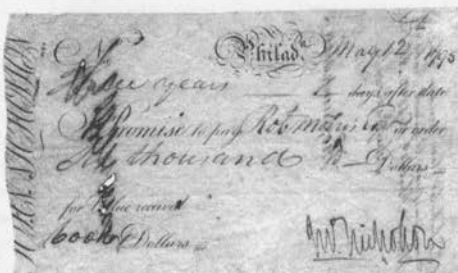 No
Philada May 12 1795
Three years days after date
I Promise to pay Robt Morris or order
Six thousand Dollars
for Value received
6000 Dollars
Jno Nicholson